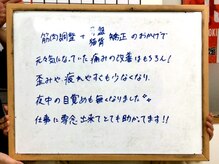 筋肉調整+骨盤
猫背 矯正のおかげで
元々気になっていた痛みの改善はもちろん!
歪みや、疲れやすくも少なくなり、
夜中の目覚めも無くなりました。
仕事に専念出来てとても助かってます!!